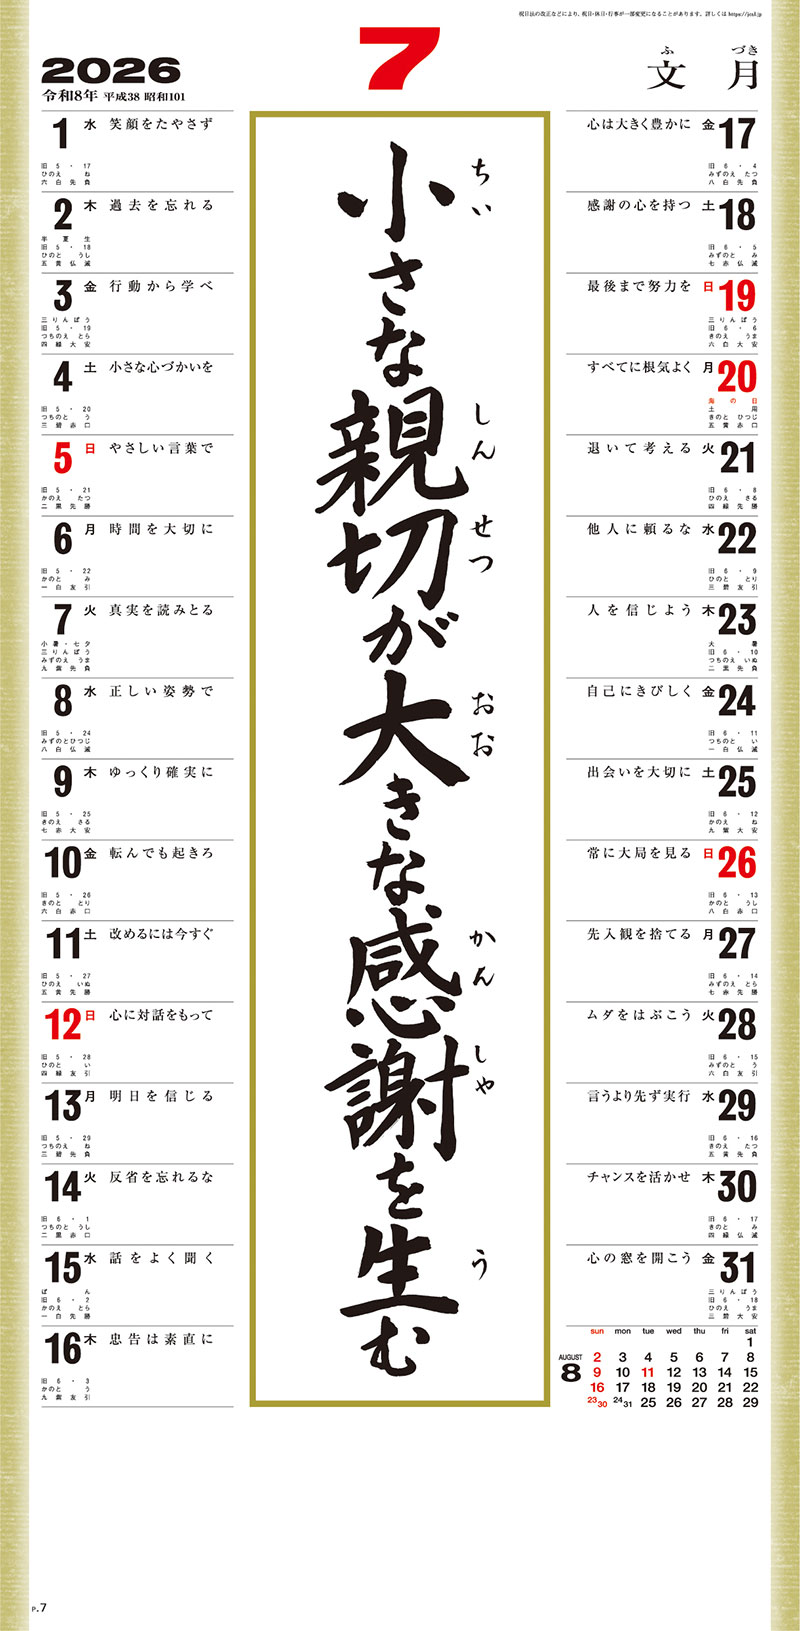 祝日法の改正などにより、祝日・休日・行事が一部変更になることがあります。詳しくは https://jcal.jp
7
2026
令和8年 平成38 昭和101
ふ づき
文月
小さな親切が大きな感謝を生む
ちい
しん
せつ
おお
かん
しゃ
う
1 水 笑顔をたやさず
旧5・17
ひのえ ね
六白先負
2 木 過去を忘れる
半夏生
旧5・18
ひのと うし
五黄仏滅
3 金 行動から学べ
三りんぼう
旧5・19
つちのえ とら
四緑大安
4 土 小さな心づかいを
旧5・20
つちのと う
三碧赤口
5 日 やさしい言葉で
旧5・21
かのえ たつ
二黒先勝
6 月 時間を大切に
旧5・22
かのと み
一白友引
7 火 真実を読みとる
小暑・七夕
三りんぼう
みずのえ うま
九紫先負
8 水 正しい姿勢で
旧5・24
みずのとひつじ
八白仏滅
9 木 ゆっくり確実に
旧5・25
きのえ さる
七赤大安
10 金 転んでも起きろ
旧5・26
きのと とり
六白赤口
11 土 改めるには今すぐ
旧5・27
ひのえ いぬ
五黄先勝
12 日 心に対話をもって
旧5・28
ひのと い
四緑友引
13 月 明日を信じる
旧5・29
つちのえ ね
三碧先負
14 火 反省を忘れるな
旧6・1
つちのと うし
二黒赤口
15 水 話をよく聞く
ぼん
旧6・2
かのえ とら
一白先勝
16 木 忠告は素直に
旧6・3
かのと う
九紫友引
心は大きく豊かに 金 17
旧6・4
みずのえ たつ
八白先負
感謝の心を持つ 土 18
旧6・5
みずのと み
七赤仏滅
最後まで努力を 日 19
三りんぼう
旧6・6
きのえ うま
六白大安
すべてに根気よく 月 20
海の日
土用
きのと ひつじ
五黄赤口
退いて考える 火 21
旧6・8
ひのえ さる
四緑先勝
他人に頼るな 水 22
旧6・9
ひのと とり
三碧友引
人を信じよう 木 23
大暑
旧6・10
つちのえ いぬ
二黒先負
自己にきびしく 金 24
旧6・11
つちのと い
一白仏滅
出会いを大切に 土 25
旧6・12
かのえ ね
九紫大安
常に大局を見る 日 26
旧6・13
かのと うし
八白赤口
先入観を捨てる 月 27
旧6・14
みずのえ とら
七赤先勝
ムダをはぶこう 火 28
旧6・15
みずのと う
六白友引
言うより先ず実行 水 29
旧6・16
きのえ たつ
五黄先負
チャンスを活かせ 木 30
旧6・17
きのと み
四緑仏滅
心の窓を開こう 金 31
三りんぼう
旧6・18
ひのえ うま
三碧大安
AUGUST
8
sun mon tue wed thu fri sat
1
2 3 4 5 6 7 8
9 10 11 12 13 14 15
16 17 18 19 20 21 22
23/30 24/31 25 26 27 28 29
P.7